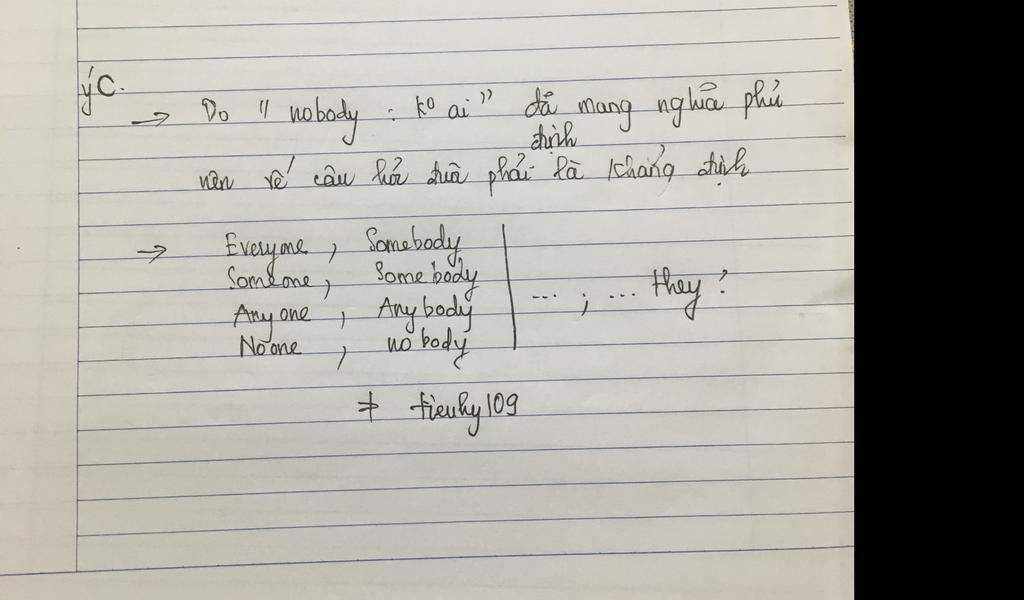 ý C.
→ Do "nobody : kº ai" đã mang nghĩa phủ
định
nên vế câu hỏi đuôi phải là khẳng định
→ Everyone , Somebody
Someone , Somebody
Any one , Any body
No one , no body
... ; ... they ?
≠ tieuhy109